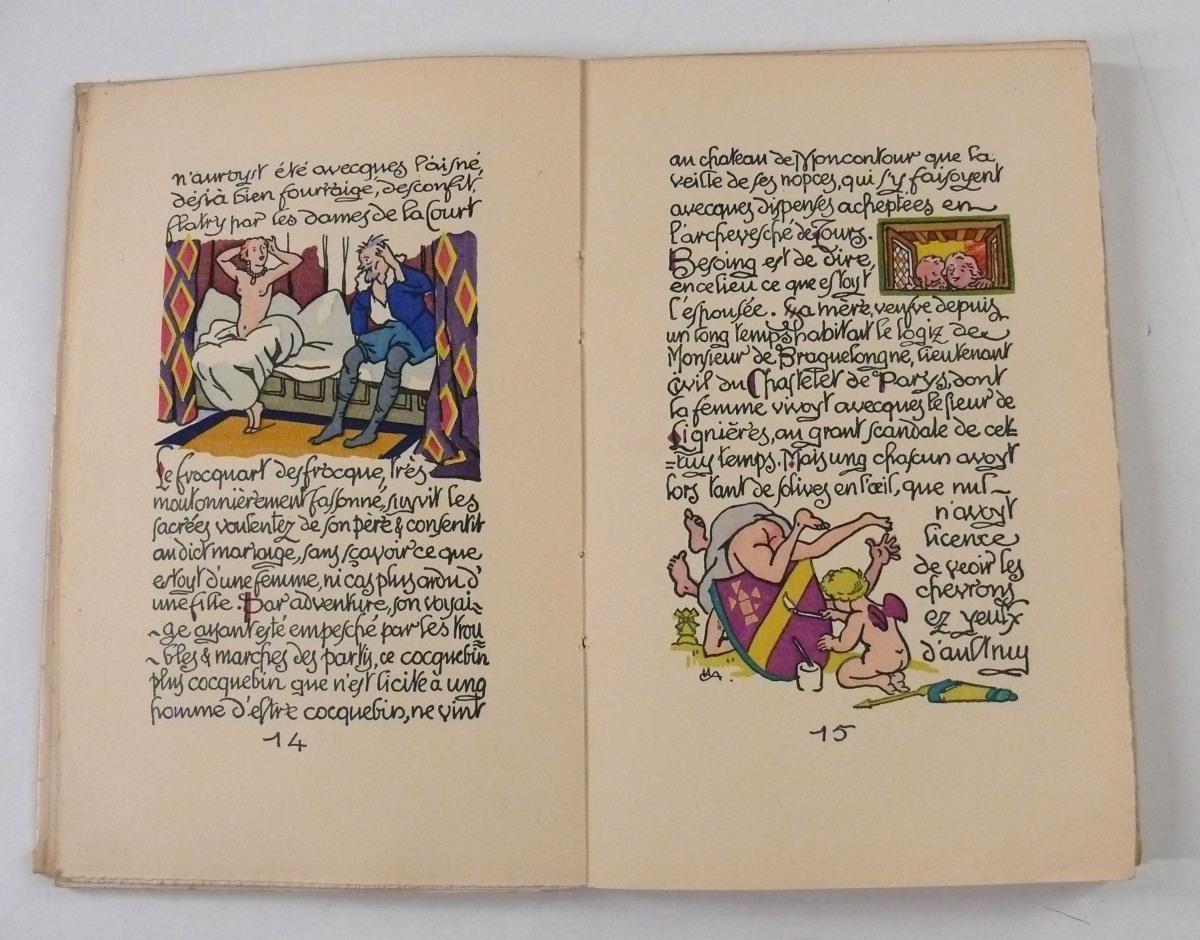 n'auroyst été avecques l'aisné,
désià bien fourraigé, desconfit,
flatry par les dames de la Court
Le frocquart desfrocque, très
moutonnièrement fassonné, suyvit les
sacrées voulentez de son père & consentit
au dict mariaige, sans sçavoir ce que
estoyt d'une femme, ni cas plus ardu d'
une fille. Par adventure, son voyai-
-ge ayant esté empesché par les trou
-bles & marches des partys, ce cocquebin
plus cocquebin que n'est licite à ung
homme d'estre cocquebin, ne vint
14
au chateau de Moncontour que la
veille de ses nopces, qui s'y faisoyent
avecques dispenses acheptées en
l'archevesché de Tours.
Besoing est de dire,
en ce lieu ce que estoyt
l'espousée. Sa mère, veufve depuis
un long temps habitait le logiz de
Monsieur de Braquelongne, lieutenant
civil du Chastelet de Parys, dont
la femme vivoyt avecques le sieur de
Lignières, au grant scandale de cet=
=tuy temps. Mais ung chascun avoyt
lors tant de solives en l'œil, que nul-
n'avoyt
licence
de veoir les
chevrons
ez yeulx
d'aultruy
15